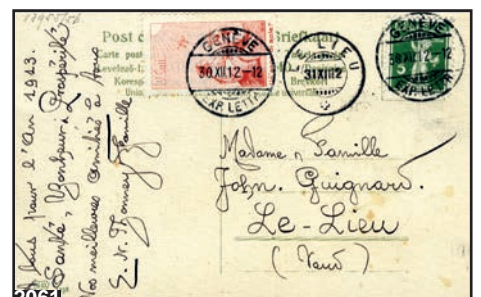 12955/56
Post c Briefkaart
Carte post
Levelező-l
Koresp Brevkort
Unio
GENÈVE
30.XII.12-12
EXP. LETTR.
LIEU
31 XII 12
GENÈVE
30.XII.12-12
EXP. LETTR.
5
A tous pour l'An 1913.
Santé, Bonheur & Prospérité
Nos meilleures amitiés à tous
Famille
Madame & Famille
John. Guignard.
Le-Lieu
(Vaud)
2061